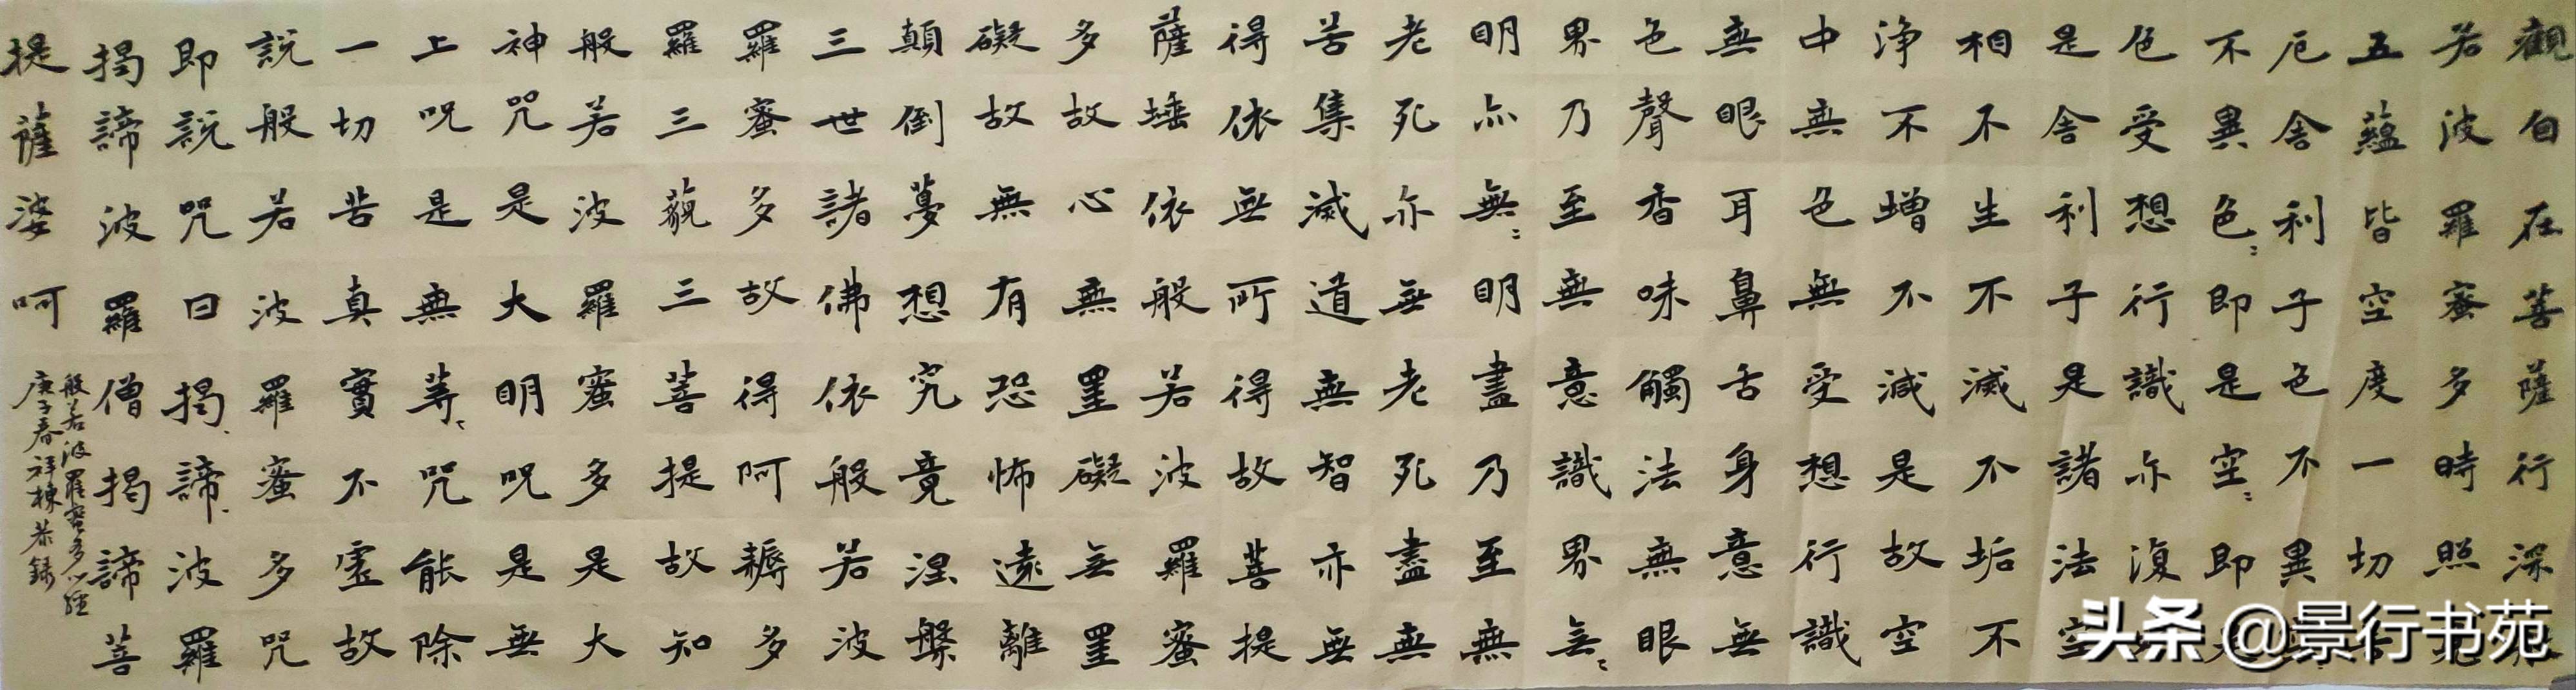 觀自在菩薩行深
若波羅蜜多時照見
五蘊皆空度一切
厄舍利子色不異
不異色〻即是空〻即
色受想行識亦復
是舍利子是諸法空
相不生不滅不垢不
淨不增不減是故空
中無色無受想行識
無眼耳鼻舌身意無
色聲香味觸法無眼
界乃至無意識界無〻
明亦無〻明盡乃至無
老死亦無老死盡無
苦集滅道無智亦無
得依無所得故菩提
薩埵依般若波羅蜜
多故心無罣礙無罣
礙故無有恐怖遠離
顛倒夢想究竟涅槃
三世諸佛依般若波
羅蜜多故得阿耨多
羅三藐三菩提故知
般若波羅蜜多是大
神咒是大明呪是無
上呪是無等〻咒能除
一切苦真實不虛故
說般若波羅蜜多咒
即說咒曰揭〻諦〻波羅
揭諦波羅僧揭諦菩
提薩婆呵
般若波羅蜜多心經
庚子春祥棟恭錄
头条 @景行书苑